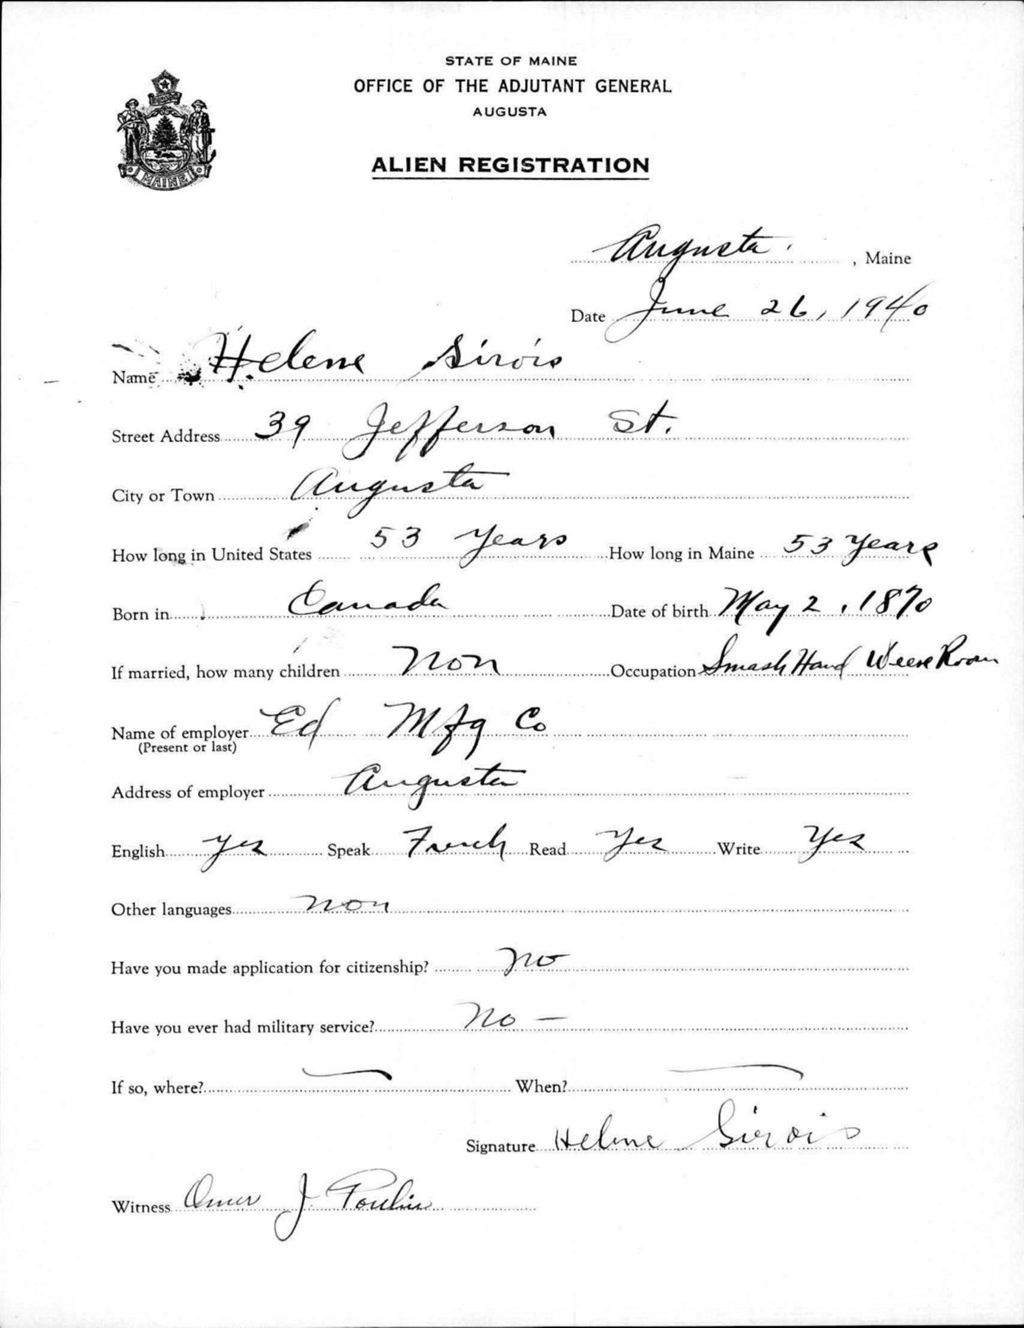 STATE OF MAINE
OFFICE OF THE ADJUTANT GENERAL
AUGUSTA
MAINE
ALIEN REGISTRATION
Augusta, Maine
Date June 26, 1940
Name Helene Sirois
Street Address 39 Jefferson St.
City or Town Augusta
How long in United States 53 Years How long in Maine 53 Years
Born in Canada Date of birth May 2, 1870
If married, how many children Non Occupation Smash Hand Room
Name of employer Ed Mfg Co
(Present or last)
Address of employer Augusta
English Yes Speak French Read Yes Write Yes
Other languages non
Have you made application for citizenship? No
Have you ever had military service? No —
If so, where? — When? —
Signature Helene Sirois
Witness Omer J. Poulin